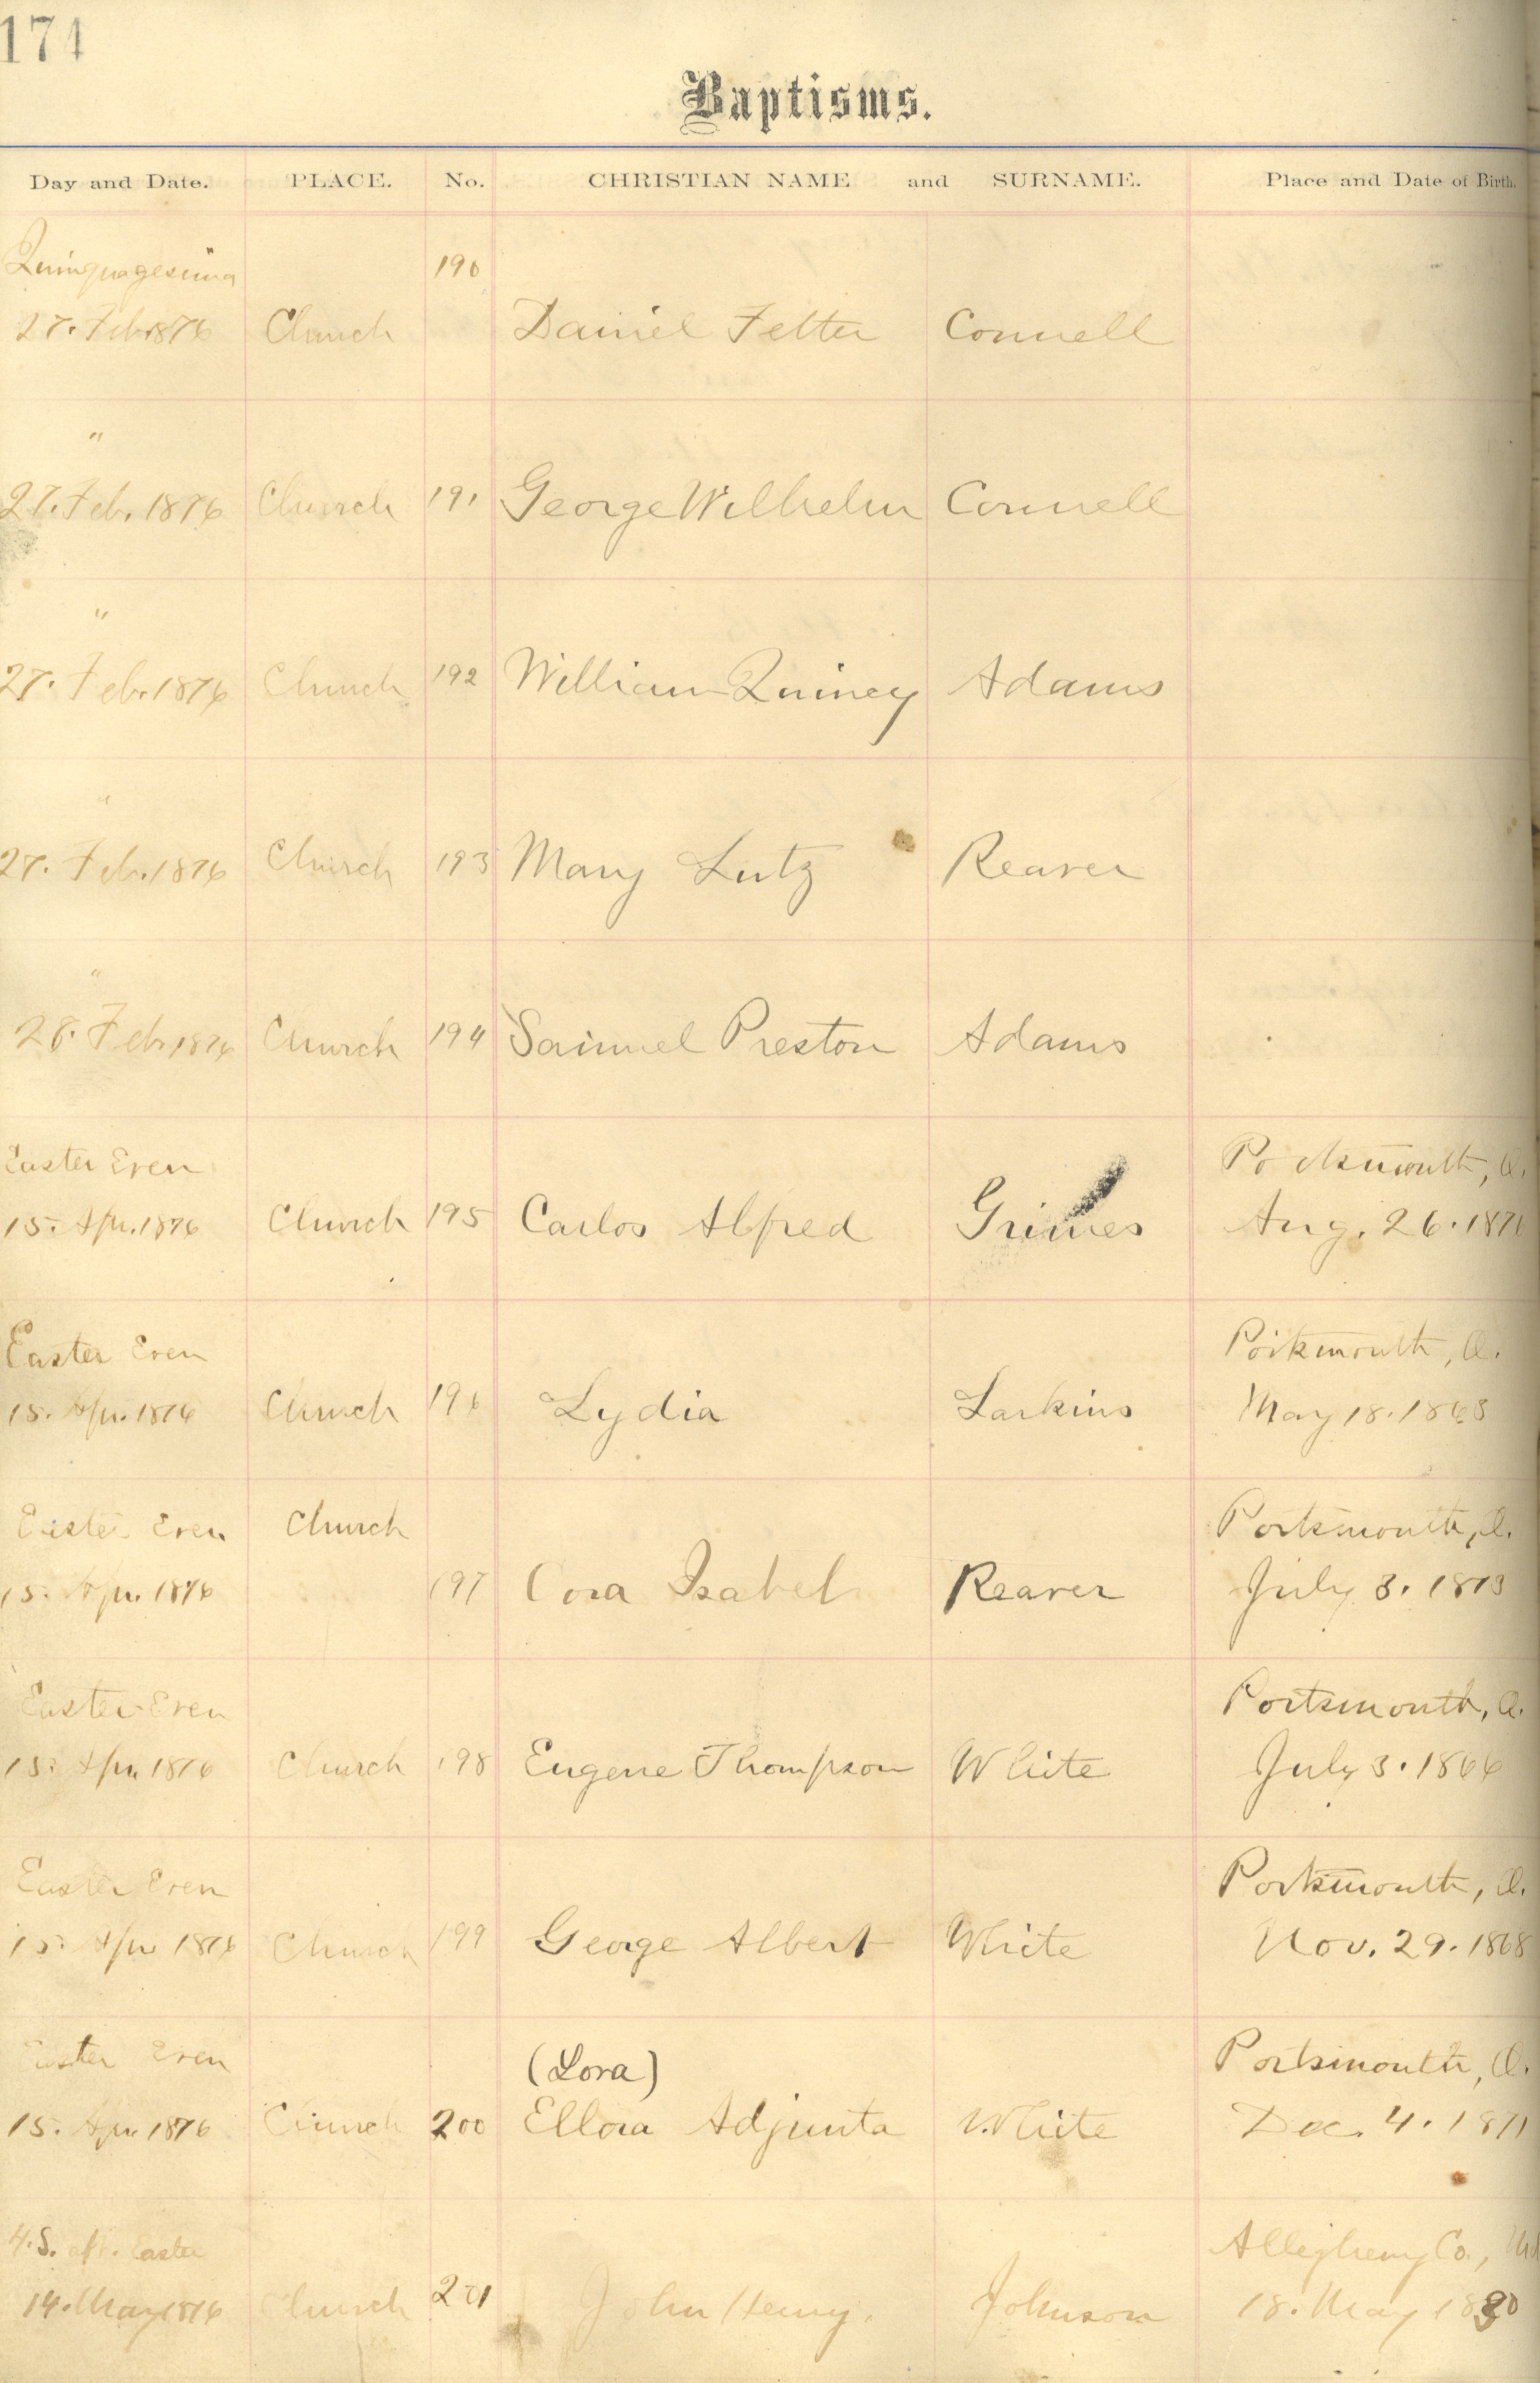 174
Baptisms.
Day and Date. PLACE. No. CHRISTIAN NAME and SURNAME. Place and Date of Birth.
Quinquagesima 190
27. Feb 1876 Church Daniel Fetter Connell
"
27. Feb. 1876 Church 191 George Wilhelm Connell
"
27. Feb. 1876 Church 192 William Quincy Adams
"
27. Feb. 1876 Church 193 Mary Lutz Reaver
"
28. Feb 1876 Church 194 Samuel Preston Adams
Easter Even Portsmouth, O.
15. Apr. 1876 Church 195 Carlos Alfred Grimes Aug. 26. 187
Easter Even Portsmouth, O.
15. Apr. 1876 Church 196 Lydia Larkins May 18. 1863
Easter Even Church Portsmouth, O.
15. Apr. 1876 197 Cora Isabel Reaver July 3. 1873
Easter Even Portsmouth, O.
15. Apr. 1876 Church 198 Eugene Thompson White July 3. 1866
Easter Even Portsmouth, O.
15. Apr. 1876 Church 199 George Albert White Nov. 29. 1868
Easter Even (Lora) Portsmouth, O.
15. Apr. 1876 Church 200 Ellora Adjunta White Dec. 4. 1871
4. S. aft. Easter Allegheny Co., Md
14. May 1876 Church 201 John Henry. Johnson 18. May 18